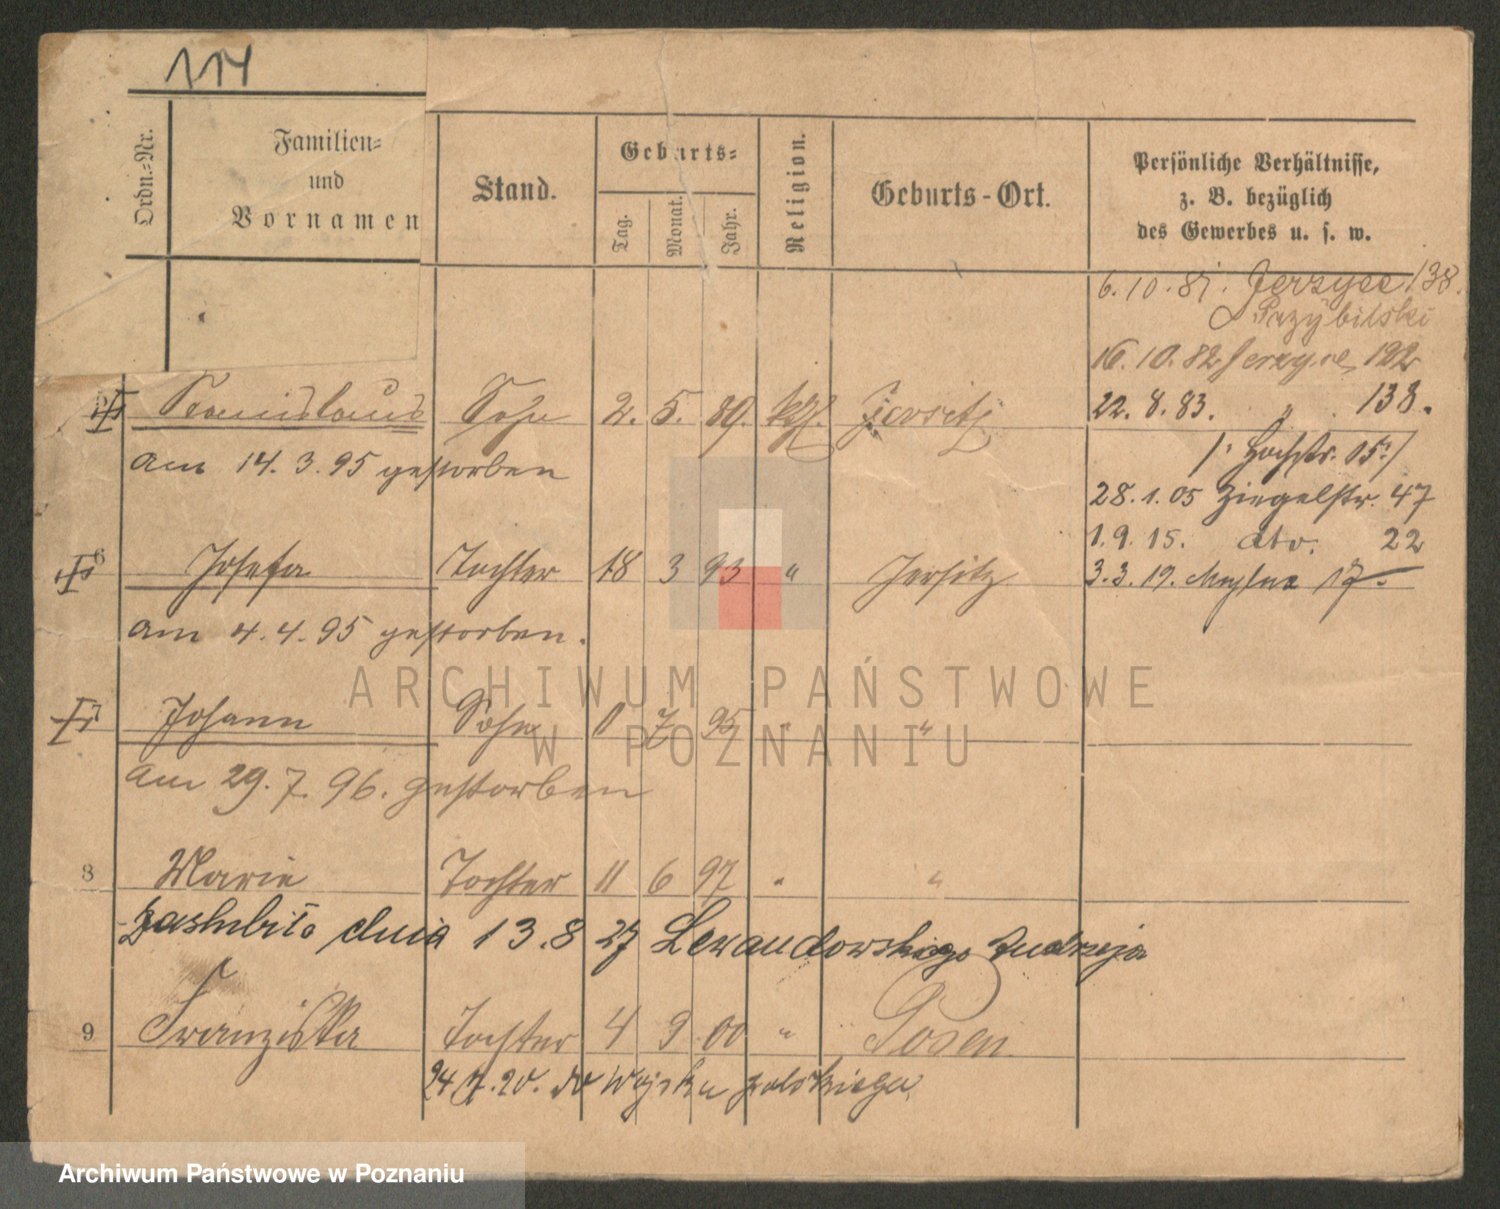 114
Ordn.-Nr.
Familien-
und
Vornamen
Stand.
Geburts-
Tag.
Monat.
Jahr.
Religion.
Geburts-Ort.
Persönliche Verhältnisse,
z. B. bezüglich
des Gewerbes u. s. w.
6.10.81. Jerzyce 138.
Przybilski
16.10.82 Jerzyce 122
22.8.83. " 138.
/: Hochstr. 05 :/
28.1.05 Ziegelstr. 47
1.9.15. dto. 22
3.3.19. 17.
Stanislaus Sohn 2. 5. 89. kth. Jersitz
am 14.3.95 gestorben
6 Josefa Tochter 18 3 93 " Jersitz
am 4.4.95 gestorben.
7 Johann Sohn 1 7 95 " "
am 29.7.96. gestorben
8 Marie Tochter 11 6 97 " "
dnia 13.8 27 Lewandowskiego Andrzeja
9 Franziska Tochter 4 9 00 " Posen
24.7.20. do Wojska polskiego.
ARCHIWUM PAŃSTWOWE
W POZNANIU
Archiwum Państwowe w Poznaniu